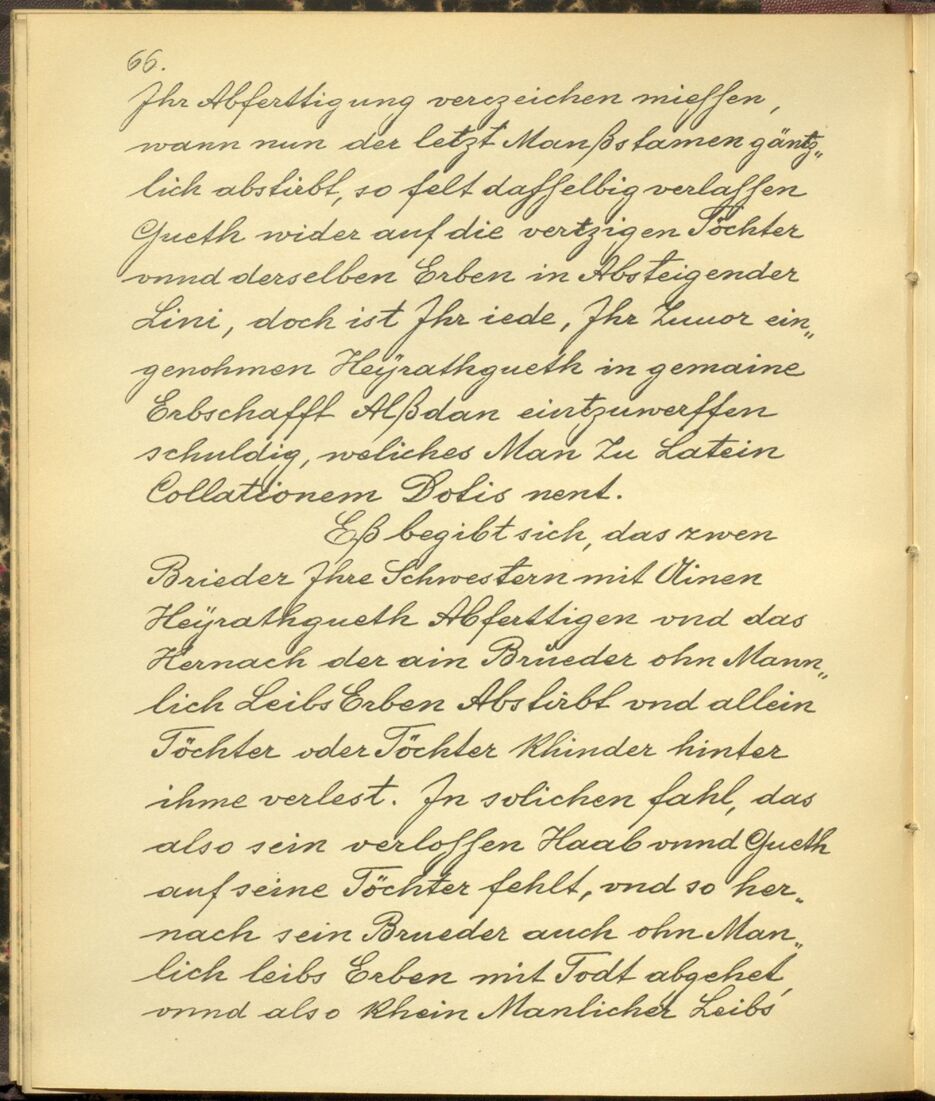 66.
Ihr Abferttigung verczeichen miessen,
wann nun der letzt Manßstamen gäntz„
lich abstirbt, so felt dasselbig verlassen
Gueth wider auf die vertzigen Töchter
vnnd derselben Erben in Absteigender
Lini, doch ist Ihr iede, Ihr Zuuor ein„
genohmen Heÿrathgueth in gemaine
Erbschafft Alßdan eintzuwerffen
schuldig, weliches Man Zu Latein
Collationem Dotis nent.
Eß begibt sich, das zwen
Brieder Ihre Schwestern mit Ainen
Heÿrathgueth Abferttigen vnd das
Hernach der ain Brueder ohn Mann„
lich Leibs Erben Abstirbt vnd allein
Töchter oder Töchter Khinder hinter
ihme verlest. In solichen fahl, das
also sein verlossen Haab vnnd Gueth
auf seine Töchter fehlt, vnd so her„
nach sein Brueder auch ohn Man„
lich leibs Erben mit Todt abgehet,
vnnd also Khein Manlicher Leibs